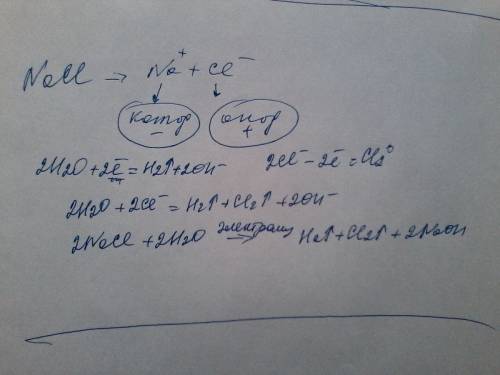 NaCl → Na⁺ + Cl⁻
катод анод
− +
2H2O + 2ē = H2↑ + 2OH⁻ 2Cl⁻ − 2ē = Cl2⁰
2H2O + 2Cl⁻ = H2↑ + Cl2↑ + 2OH⁻
2NaCl + 2H2O электролиз → H2↑ + Cl2↑ + 2NaOH